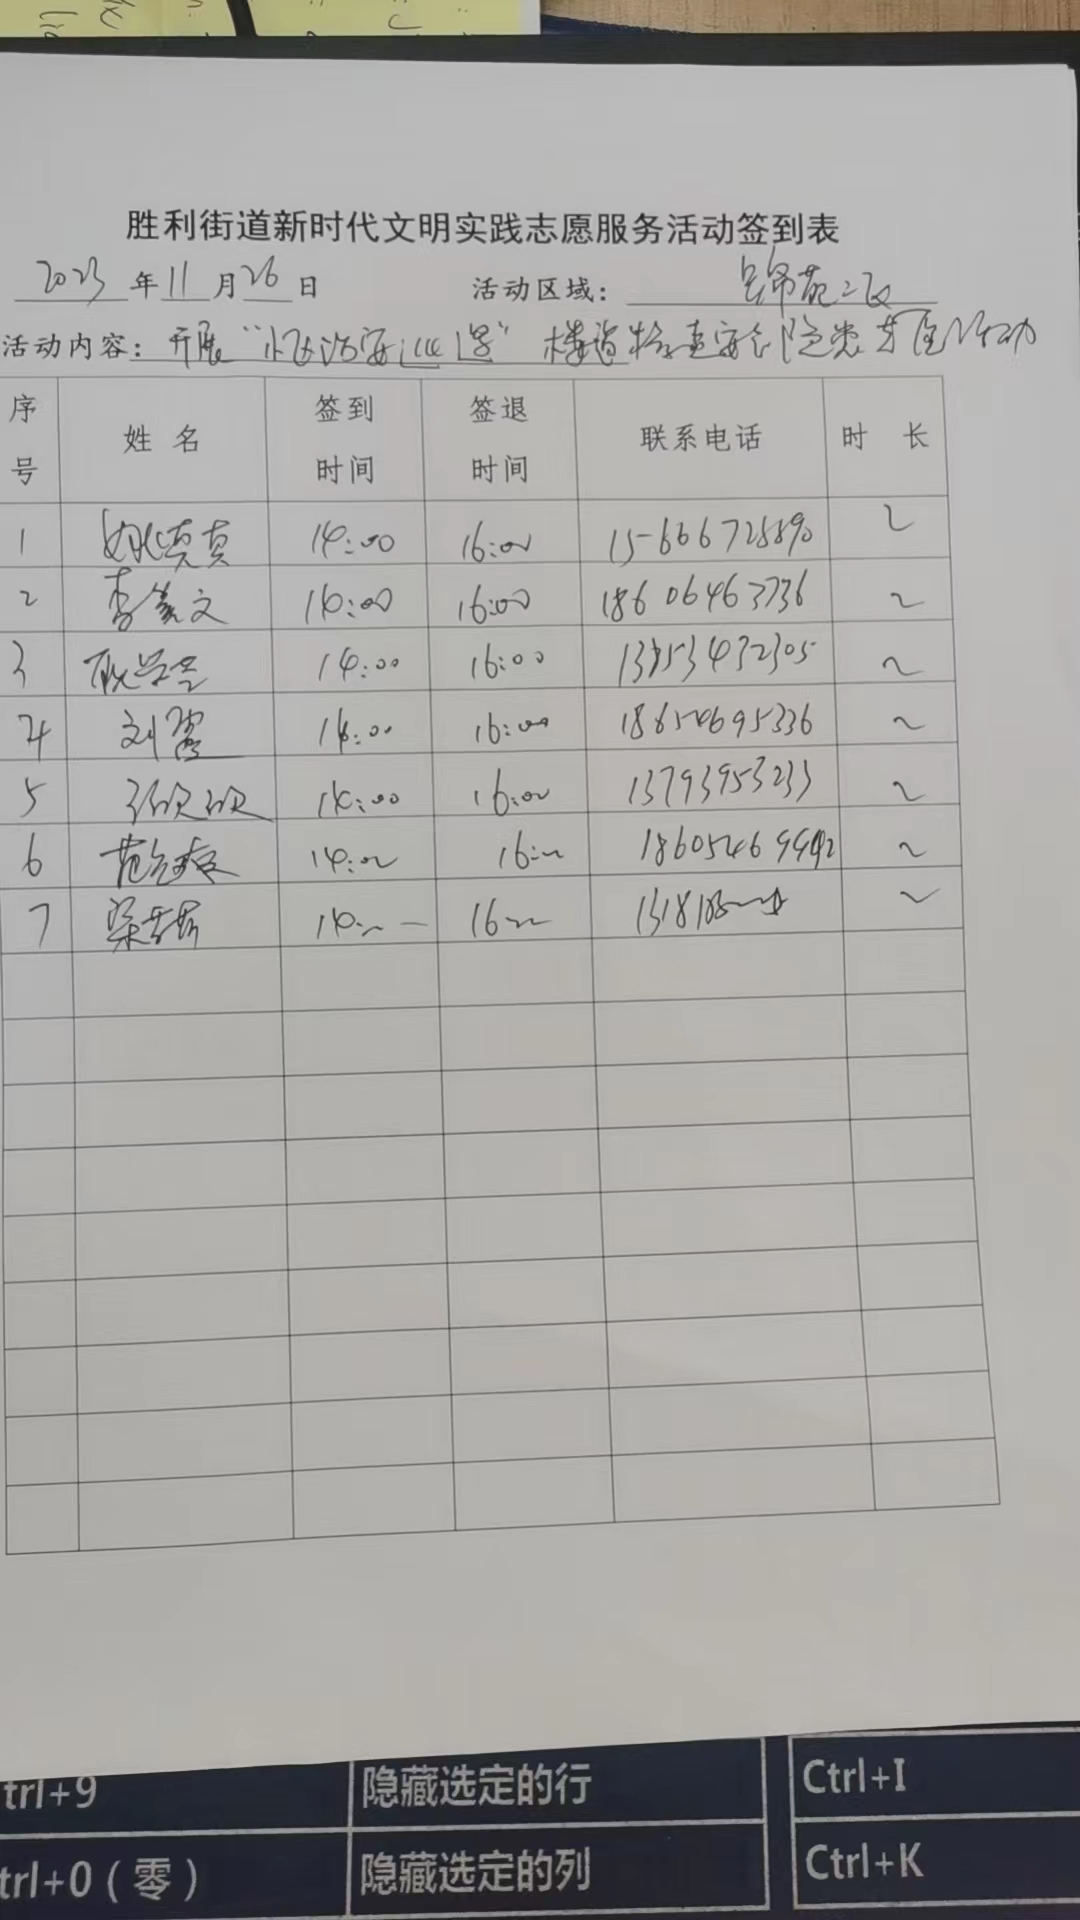 胜利街道新时代文明实践志愿服务活动签到表
2023 年 11 月 26 日 活动区域: 锦苑二区
活动内容: 开展 楼道检查安全隐患 活动
序号 姓名 签到时间 签退时间 联系电话 时长
1 姚真真 14:00 16:00 15666725890 2
2 李美文 14:00 16:00 18606463736 2
3 14:00 16:00 13153432305 2
4 刘 14:00 16:00 18654695336 2
5 张欣欣 14:00 16:00 13793953233 2
6 范 14:00 16:00 2
7 梁 14:00 16:00 2
trl+9 隐藏选定的行 Ctrl+I
trl+0(零) 隐藏选定的列 Ctrl+K